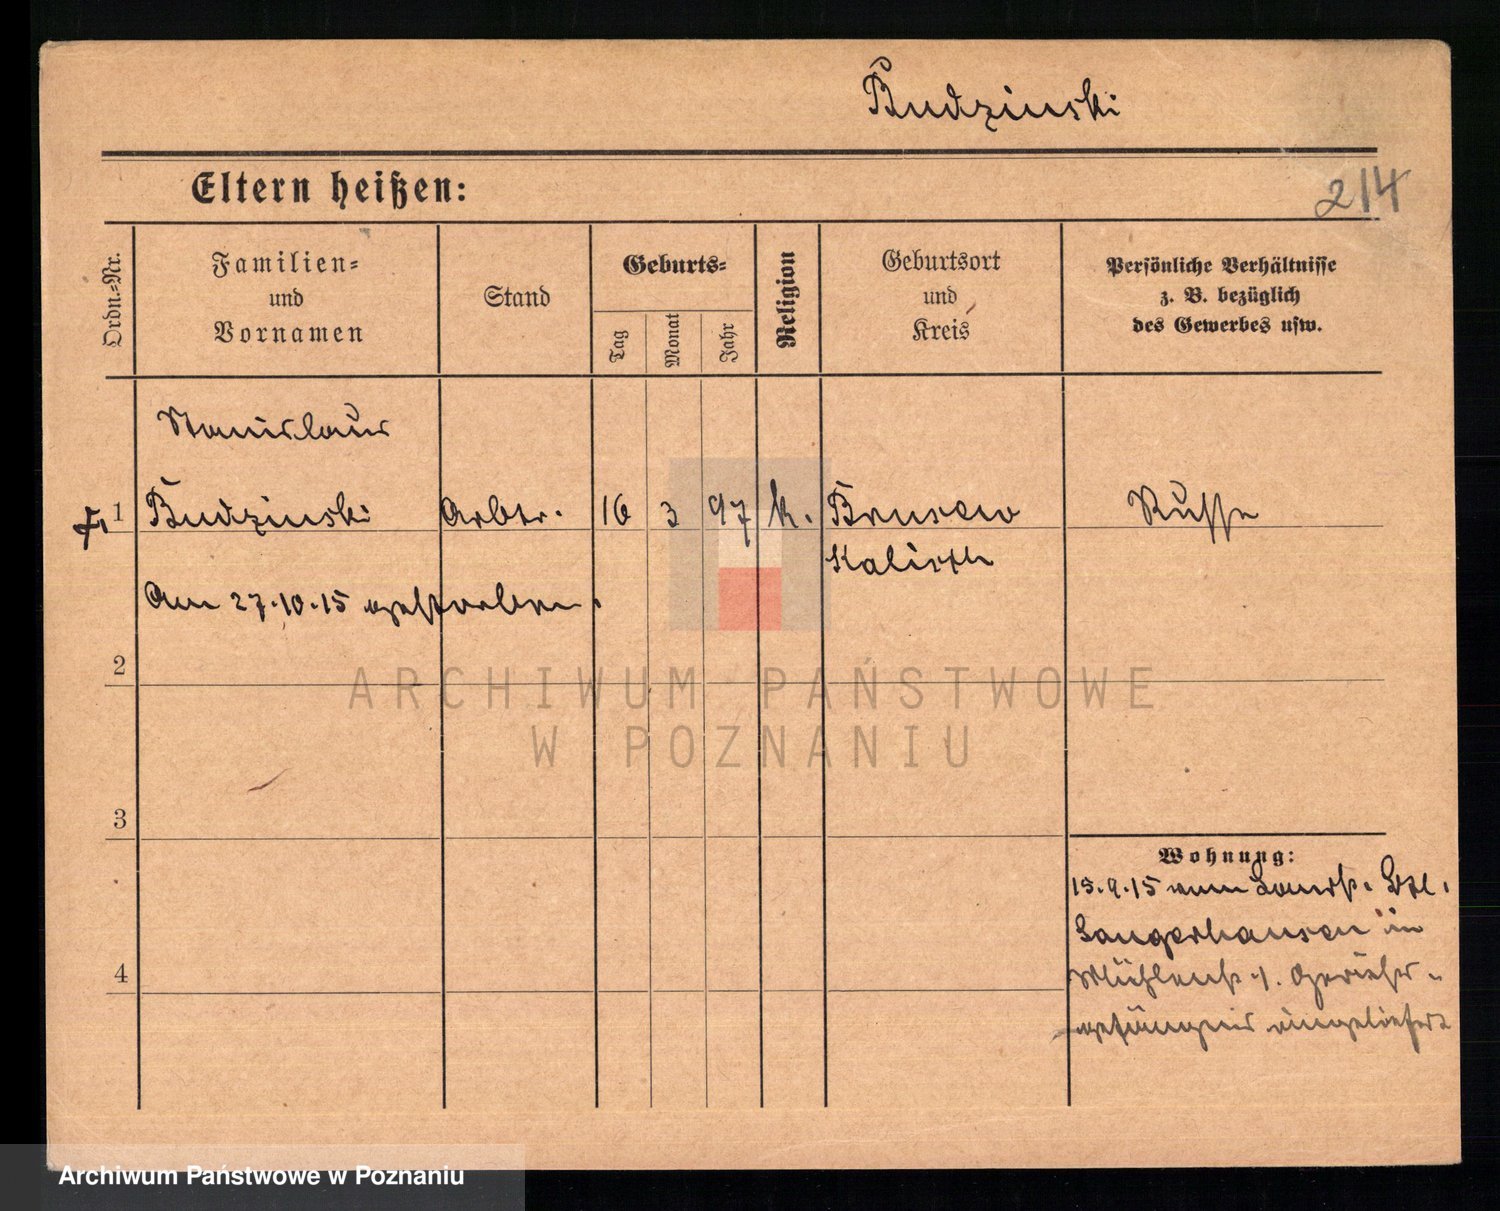 Budzinski
Eltern heißen:
214
Ordn.=Nr.
Familien=
und
Vornamen
Stand
Geburts=
Tag
Monat
Jahr
Religion
Geburtsort
und
Kreis
Persönliche Verhältnisse
z. B. bezüglich
des Gewerbes usw.
Stanislaus
1 Budzinski Arbtr. 16 3 97 k. Brusew Russe
Kalisch
Am 27.10.15 gestorben.
2
3
4
Wohnung:
15.9.15 vom
Sangerhausen in
Mühlenstr. 1. Gerichts-
gefängnis eingeliefert
ARCHIWUM PAŃSTWOWE
W POZNANIU
Archiwum Państwowe w Poznaniu